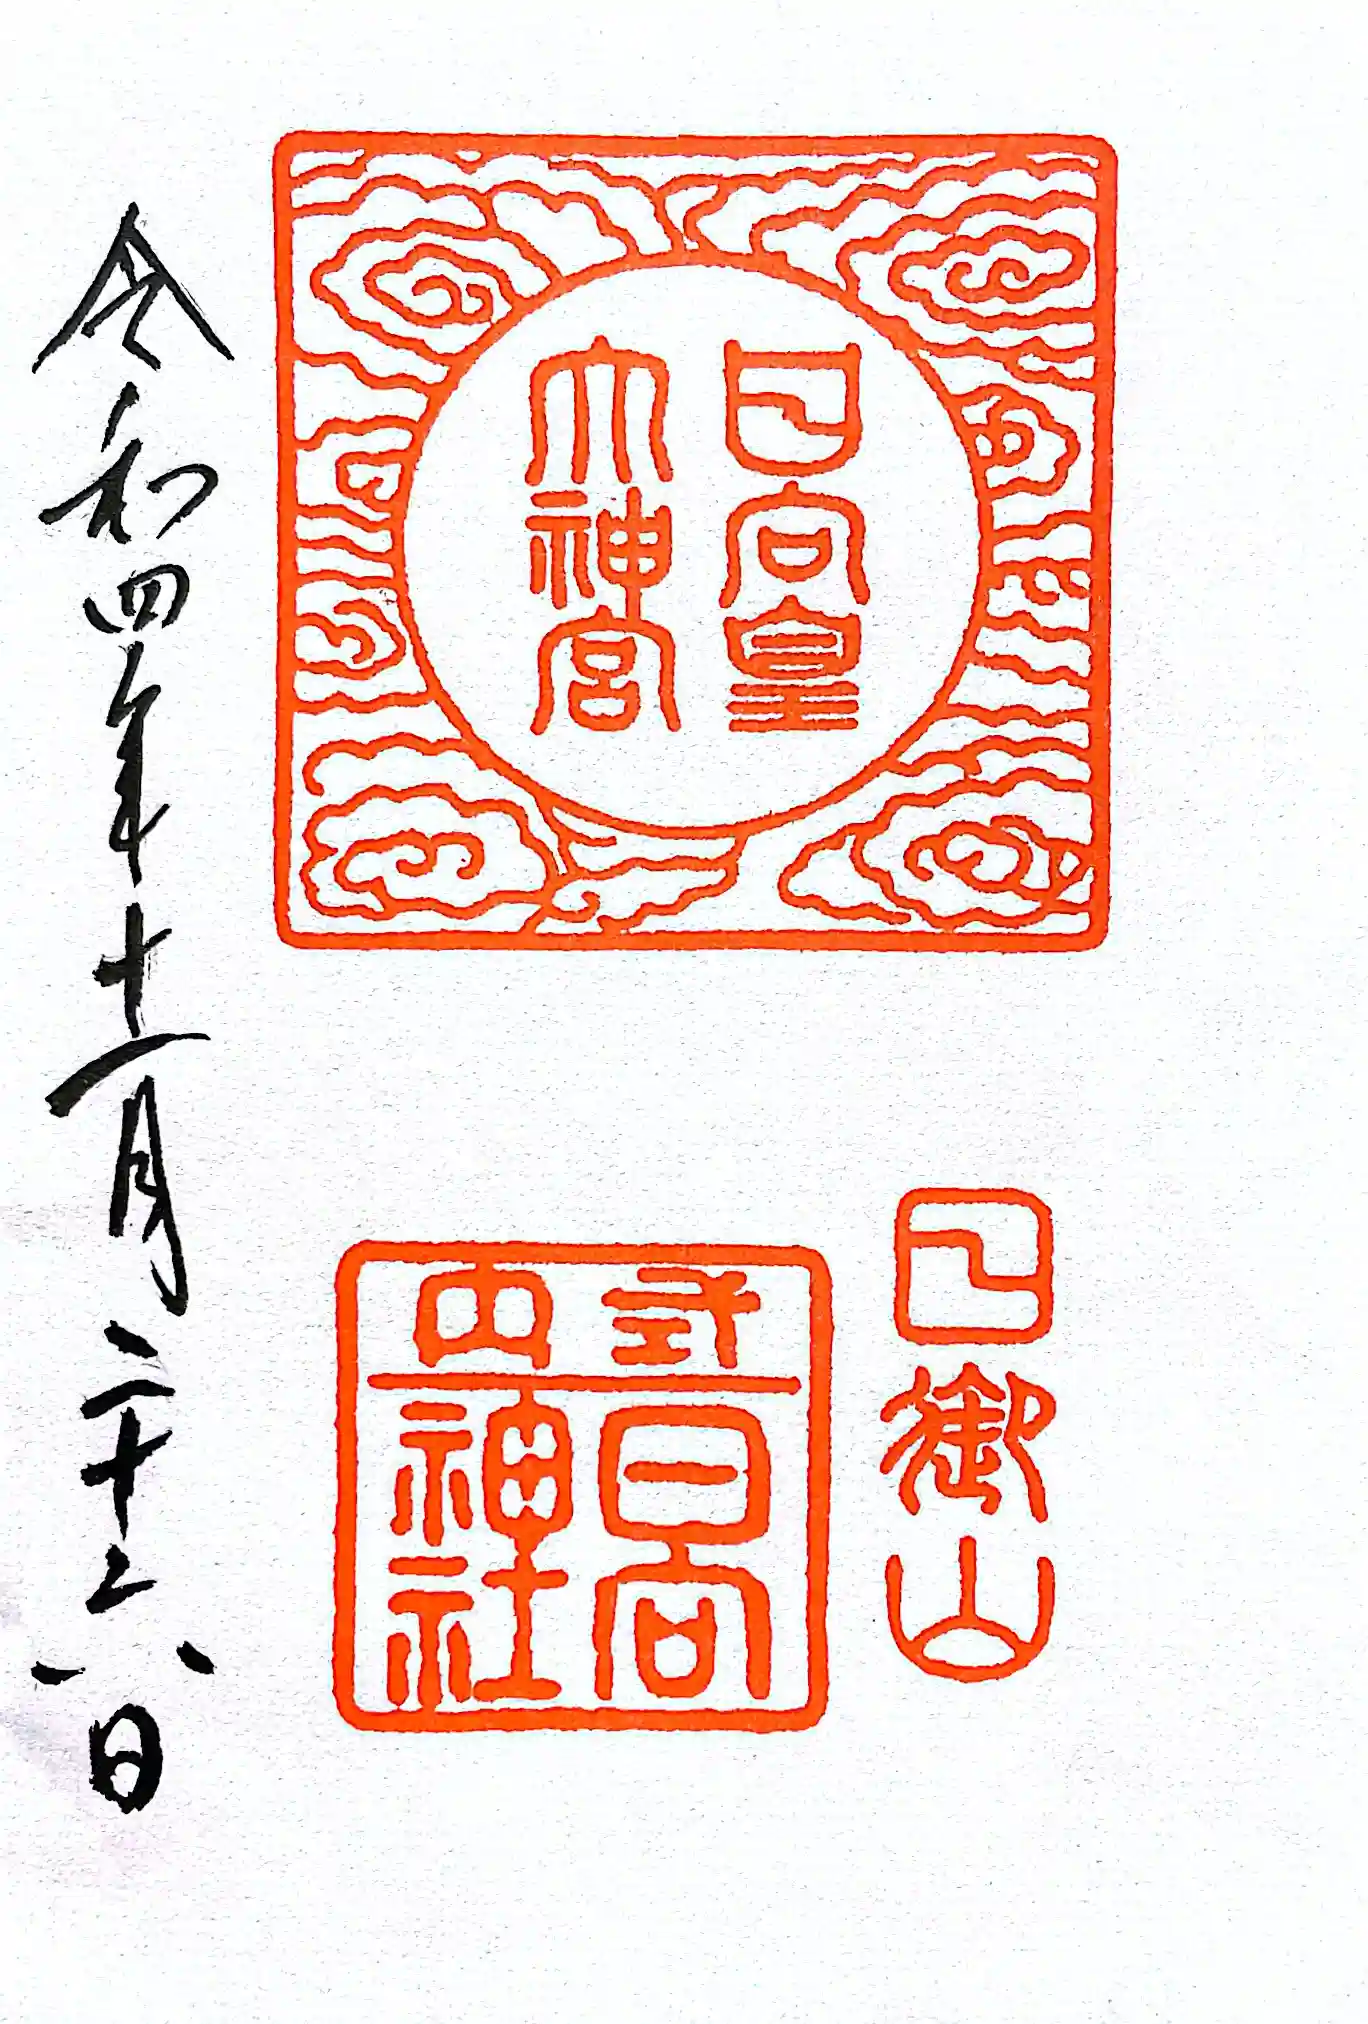 日向皇
大神宮
日御山
式内
日向
神社
令和四年十一月二十六日